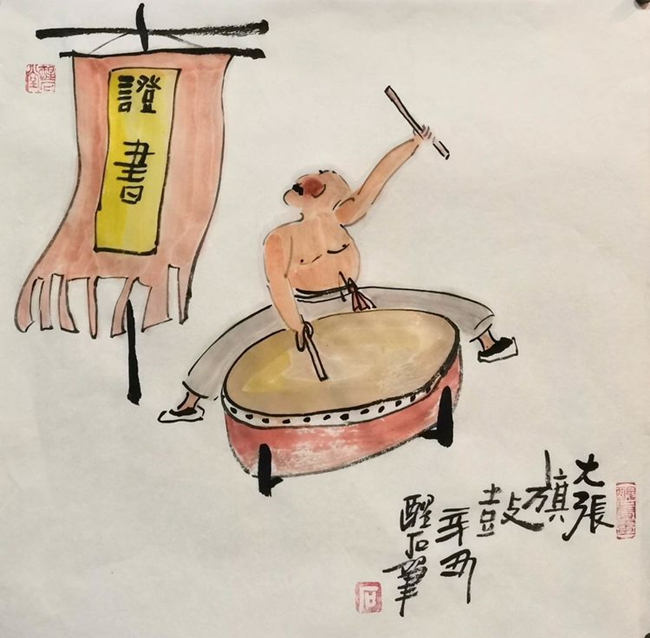 證書
大張
旗
鼓
辛丑
醒石筆
石